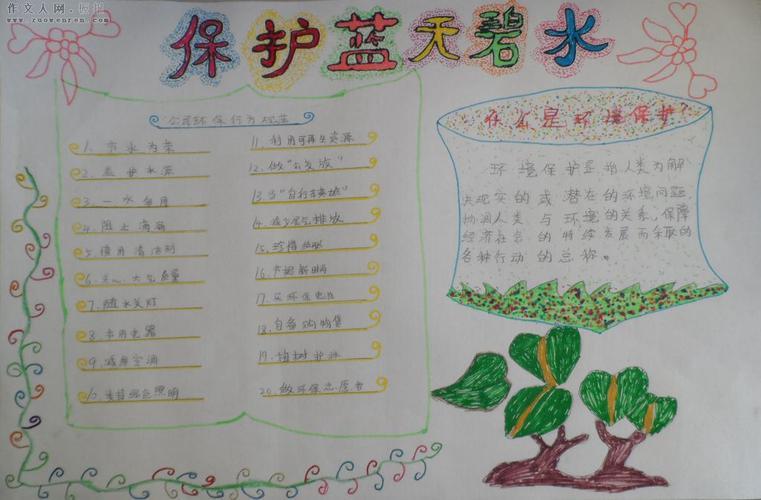 作文人网
www.zuowenren.com
保护蓝天碧水
公民环保行为规范
1. 节水为荣
2. 爱护水源
3. 一水多用
4. 阻止滴漏
5. 慎用清洁剂
6. 关心大气质量
7. 随手关灯
8. 节用电器
9. 减用空调
10. 支持绿色照明
11. 利用可再生资源
12. 做“公交族”
13. 当“自行车英雄”
14. 减少尾气排放
15. 珍惜纸张
16.
17. 买环保电池
18. 自备购物袋
19. 植树护林
20. 做环保志愿者
什么是环境保护?
环境保护是指人类为解
决现实的或潜在的环境问题,
协调人类与环境的关系,保障
经济社会的持续发展而采取的
各种行动的总称。